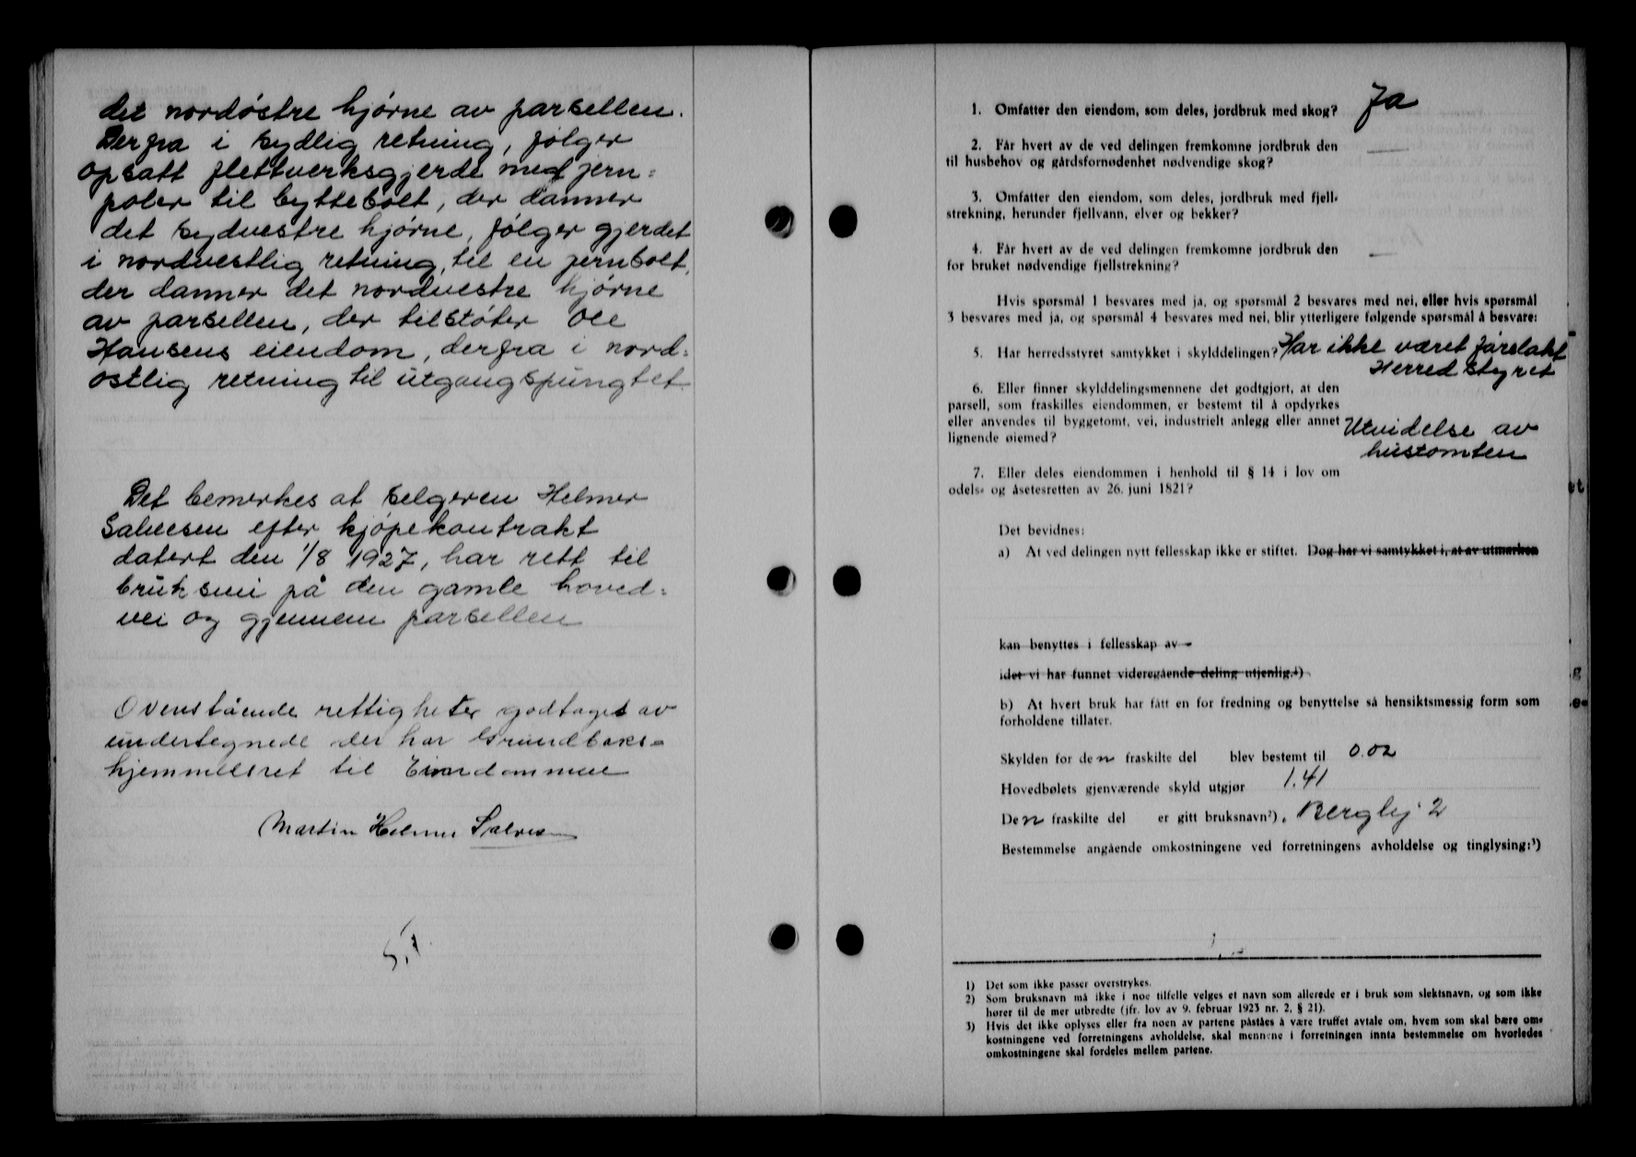 det nordöstre hjörne av parsellen.
Derfra i sydlig retning, fölger
opsatt flettverksgjerde med jern=
poler til byttebolt, der danner
det sydvestre hjörne, fölger gjerdet
i nordvestlig retning, til en jernbolt,
der danner det nordvestre hjörne
av parsellen, der tilstöter Ole
Hansens eiendom, derfra i nord=
östlig retning til utgangspungtet.
Det bemerkes at selgeren Helmer
Salvesen efter kjöpekontrakt
datert den 1/8 1927, har rett til
bruk sin på den gamle hoved=
vei og gjennem parsellen
Ovenstående rettigheter godtages av
undertegnede der har Grundboks=
hjemmelsret til Eiendommen
Martin Helmer Salvesen
1. Omfatter den eiendom, som deles, jordbruk med skog? Ja
2. Får hvert av de ved delingen fremkomne jordbruk den
til husbehov og gårdsfornødenhet nødvendige skog? —
3. Omfatter den eiendom, som deles, jordbruk med fjell-
strekning, herunder fjellvann, elver og bekker?
4. Får hvert av de ved delingen fremkomne jordbruk den
for bruket nødvendige fjellstrekning? —
Hvis spørsmål 1 besvares med ja, og spørsmål 2 besvares med nei, eller hvis spørsmål
3 besvares med ja, og spørsmål 4 besvares med nei, blir ytterligere følgende spørsmål å besvare:
5. Har herredsstyret samtykket i skylddelingen? Har ikke været förelakt
Herredstyret
6. Eller finner skylddelingsmennene det godtgjort, at den
parsell, som fraskilles eiendommen, er bestemt til å opdyrkes
eller anvendes til byggetomt, vei, industrielt anlegg eller annet
lignende øiemed? Utvidelse av
hustomten
7. Eller deles eiendommen i henhold til § 14 i lov om
odels- og åsetesretten av 26. juni 1821?
Det bevidnes:
a) At ved delingen nytt fellesskap ikke er stiftet. Dog har vi samtykket i, at av utmarken
kan benyttes i fellesskap av -
idet vi har funnet videregående deling utjenlig.¹)
b) At hvert bruk har fått en for fredning og benyttelse så hensiktsmessig form som
forholdene tillater.
Skylden for den fraskilte del blev bestemt til 0.02
Hovedbølets gjenværende skyld utgjør 1.41
Den fraskilte del er gitt bruksnavn²). Berglij 2
Bestemmelse angående omkostningene ved forretningens avholdelse og tinglysing:³)
1) Det som ikke passer overstrykes.
2) Som bruksnavn må ikke i noe tilfelle velges et navn som allerede er i bruk som slektsnavn, og som ikke
hører til de mer utbredte (jfr. lov av 9. februar 1923 nr. 2, § 21).
3) Hvis det ikke oplyses eller fra noen av partene påståes å være truffet avtale om, hvem som skal bære om-
kostningene ved forretningens avholdelse, skal mennene i forretningen innta bestemmelse om hvorledes
omkostningene skal fordeles mellem partene.